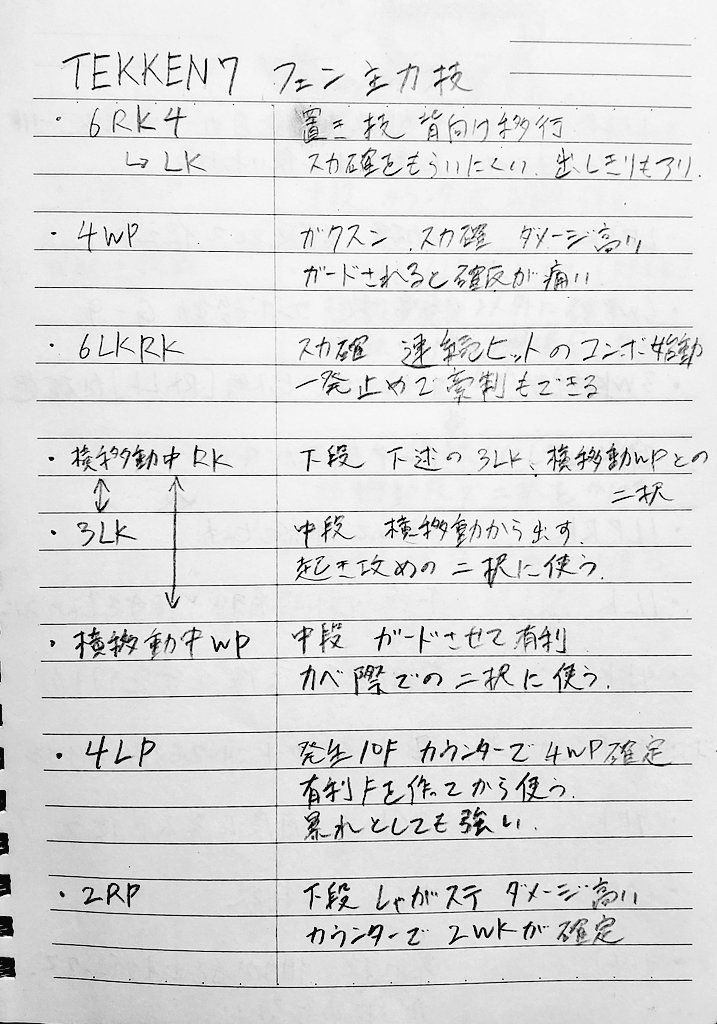 TEKKEN7 フェン主力技
・6RK4 置き技 背向け移行
↳ LK スカ確をもらいにくい、出しきりもアリ.
・4WP ガクスン、スカ確 ダメージ高い
ガードされると確反が痛い
・6LKRK スカ確 連続ヒットのコンボ始動
一発止めで牽制もできる
・横移動中RK 下段 下述の3LK、横移動WPとの
二択
・3LK 中段 横移動から出す.
起き攻めの二択に使う.
・横移動中WP 中段 ガードさせて有利
カベ際での二択に使う.
・4LP 発生10F カウンターで4WP確定
有利Fを作ってから使う.
暴れとしても強い.
・2RP 下段 しゃがステ ダメージ高い
カウンターで2WKが確定